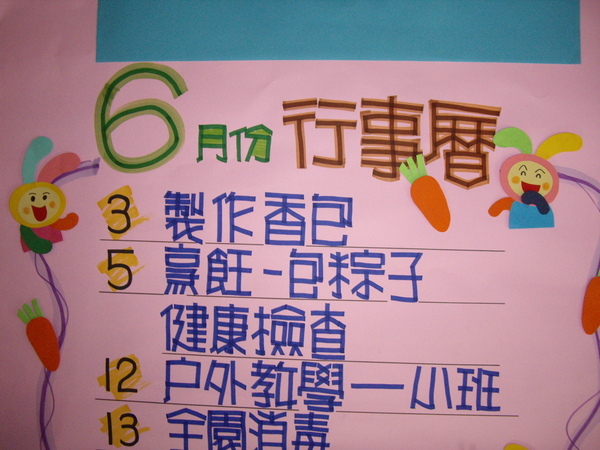 6月份行事曆
3 製作香包
5 烹飪-包粽子
健康檢查
12 戶外教學—小班
13 全園消毒